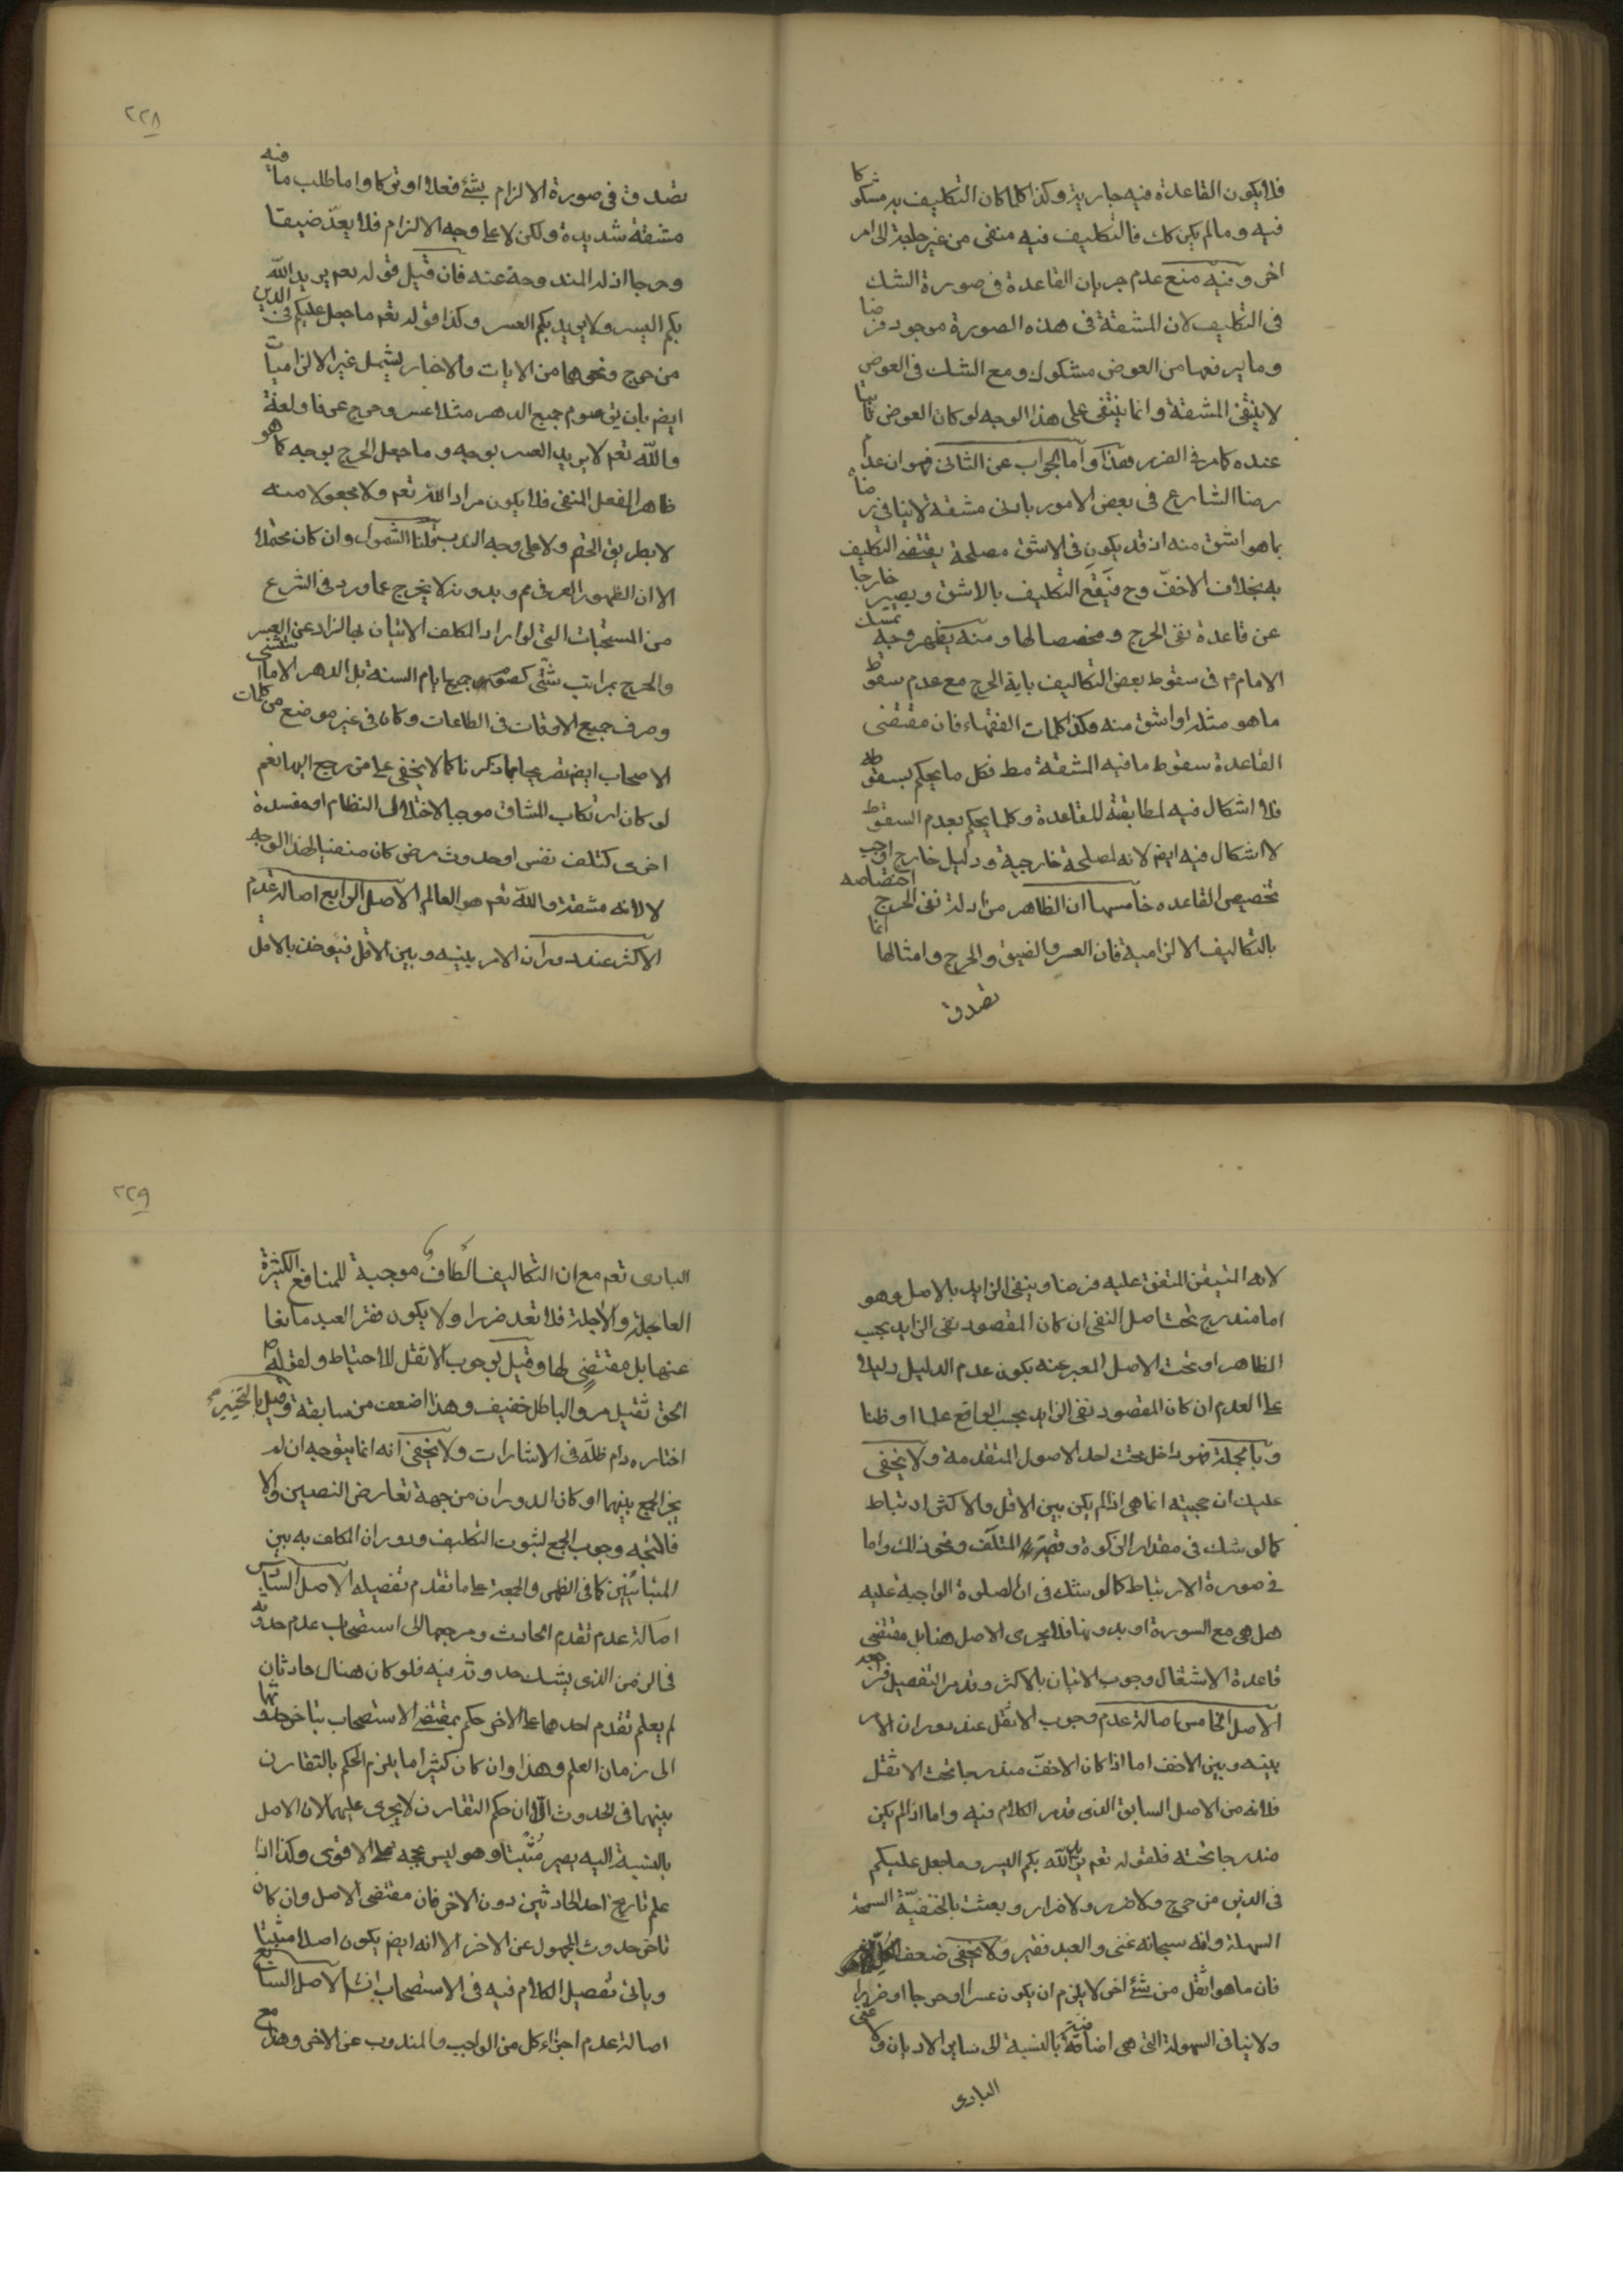 فلا يكون القاعدة فيه جارية وكذا كلما كان التكليف به مشكوكا
فيه وما لم يكن كك فالتكليف فيه منفى من غير حاجة الى امر
اخر وفيه منع عدم جريان القاعدة فى صورة الشك
فى التكليف لان المشقة فى هذه الصورة موجود فرضا
وما يرفعها من العوض مشكوك ومع الشك فى العوض
لا ينتفى المشقة وانما ينتفى على هذا الوجه لو كان العوض ثابتا
عنده كما مر فى الضرر هذا واما الجواب عن الثانى فهو ان عدم
رضا الشارع فى بعض الامور بادنى مشقة لا ينافى رضاه
بما هو اشق منه اذ قد يكون فى الاشق مصلحة يقتضى التكليف
به بخلاف الاخف وح فيقع التكليف بالاشق ويصير خارجا
عن قاعدة نفى الحرج ومخصصا لها ومنه يظهر وجه تمسك
الامام م فى سقوط بعض التكاليف باية الحرج مع عدم سقوط
ما هو مثله او اشق منه وكذا كلمات الفقهاء فان مقتضى
القاعدة سقوط ما فيه المشقة مط فكل ما يحكم بسقوطه
فلا اشكال فيه لمطابقة للقاعدة وكلما يحكم بعدم السقوط
لا اشكال فيه ايض لانه لمصلحة خارجية ودليل خارج اوجب
تخصيص القاعده خامسها ان الظاهر من ادلة نفى الحرج اختصاصه
بالتكاليف الالزامية فان العسر والضيق والحرج وامثالها انما
تصدق
٢٢٨
تصدق فى صورة الالزام بشئ فعلا او تركا واما طلب ما فيه
مشقة شديدة ولكن لا على وجه الالزام فلا يعد ضيقا
وحرجا اذ له المندوحة عنه فان قيل قوله تعم يريد الله
بكم اليسر ولا يريد بكم العسر وكذا قوله تعم ما جعل عليكم فى الدين
من حرج ونحوهما من الايات والاخبار يشمل غير الالزاميات
ايض بان يق صوم جميع الدهر مثلا عسر وحرج عرفا ولغة
والله تعم لا يريد العسر بوجه وما جعل الحرج بوجه كما هو
ظاهر الفعل المنفى فلا يكون مراد الله تعم ولا مجعولا منه
لا بطريق الحتم ولا على وجه الندب قلنا الشمول وان كان محتملا
الا ان الظهور العرفى مم وبدونه لا يخرج عما ورد فى الشرع
من المستحبات التى لو اراد المكلف الاتيان بها لزاد عن العسر
والحرج بمراتب شتى كصوم جميع ايام السنة بل الدهر الا ما استثنى
وصرف جميع الاوقات فى الطاعات وكان فى غير موضع من كلمات
الاصحاب ايض تصريحا بما ذكرنا كما لا يخفى على من رجع اليها نعم
لو كان ارتكاب المشاق موجبا لاختلال النظام او مفسدة
اخرى كتلف نفس او حدوث مرض كان منفيا لهذا الوجه
لا لانه مشقة والله تعم هو العالم الاصل الرابع اصالة عدم
الاكثر عند دوران الامر بينه وبين الاقل فيؤخذ بالاقل
لانه المتيقن المتفق عليه فرضا وينفى الزايد بالاصل وهو
اما مندرج تحت اصل النفى ان كان المقصود نفى الزايد بحسب
الظاهر او تحت الاصل المعبر عنه بكون عدم الدليل دليلا
على العدم ان كان المقصود نفى الزايد بحسب الواقع علما او ظنا
وبالجملة فهو داخل تحت احد الاصول المتقدمة ولا يخفى
عليك ان حجيته انما هى اذا لم يكن بين الاقل والاكثر ارتباط
كما لو شك فى مقدار الزكوة و المتلف ونحو ذلك واما
فى صورة الارتباط كما لو شك فى ان الصلوة الواجبة عليه
هل هى مع السورة او بدونها فلا يجرى الاصل هنا بل مقتضى
قاعدة الاشتغال وجوب الاتيان بالاكثر وقد مر التفصيل فراجعه
الاصل الخامس اصالة عدم وجوب الاثقل عند دوران الامر
بينه وبين الاخف اما اذا كان الاخف مندرجا تحت الاثقل
فلانه من الاصل السابق الذى قد مر الكلام فيه واما اذا لم يكن
مندرجا تحته فلقوله تعم يريد الله بكم اليسر وما جعل عليكم
فى الدين من حرج ولا ضرر ولا ضرار وبعثت بالحنفية السمحة
السهلة وانه سبحانه غنى والعبد فقير ولا يخفى ضعف الكل
فان ما هو اثقل من شئ اخر لا يلزم ان يكون عسرا او حرجا او ضررا
ولا ينافى السهولة التى هى اضافية بالنسبة الى ساير الاديان ولا غنى
البارى
٢٢٩
البارى تعم مع ان التكاليف الطاف موجبة للمنافع الكثيرة
العاجلة والاجلة فلا تعد ضررا ولا يكون فقر العبد مانعا
عنها بل مقتضى لها وقيل بوجوب الاثقل للاحتياط ولقوله ص
الحق ثقيل مر والباطل خفيف وهذا اضعف من سابقة وقيل بالتخيير
اختاره دام ظله فى الاشارات ولا يخفى انه انما يتوجه ان لم
يجز الجمع بينهما او كان الدوران من جهة تعارض النصين والا
فالمتجه وجوب الجمع لثبوت التكليف ودوران المكلف به بين
المتباينين كما فى الظهر والجمعة على ما تقدم تفصيله الاصل السادس
اصالة عدم تقدم الحادث ومرجعها الى استصحاب عدم حدوثه
فى الزمن الذى يشك حدوثه فيه فلو كان هناك حادثان
لم يعلم تقدم احدهما على الاخر حكم بمقتضى الاستصحاب بتاخر حدوثهما
الى زمان العلم وهذا وان كان كثيرا ما يلزم الحكم بالتقارن
بينهما فى الحدوث الا ان حكم التقارن لا يجرى عليهما لان الاصل
بالنسبة اليه يصير مثبتا وهو ليس بحجة على الاقوى وكذا اذا
علم تاريخ احد الحادثين دون الاخر فان مقتضى الاصل وان كان
تاخر حدوث المجهول عن الاخر الا انه ايض يكون اصلا مثبتا
وياتى تفصيل الكلام فيه فى الاستصحاب انش الاصل السابع
اصالة عدم اجزاء كل من الواجب والمندوب عن الاخر وهذا مع